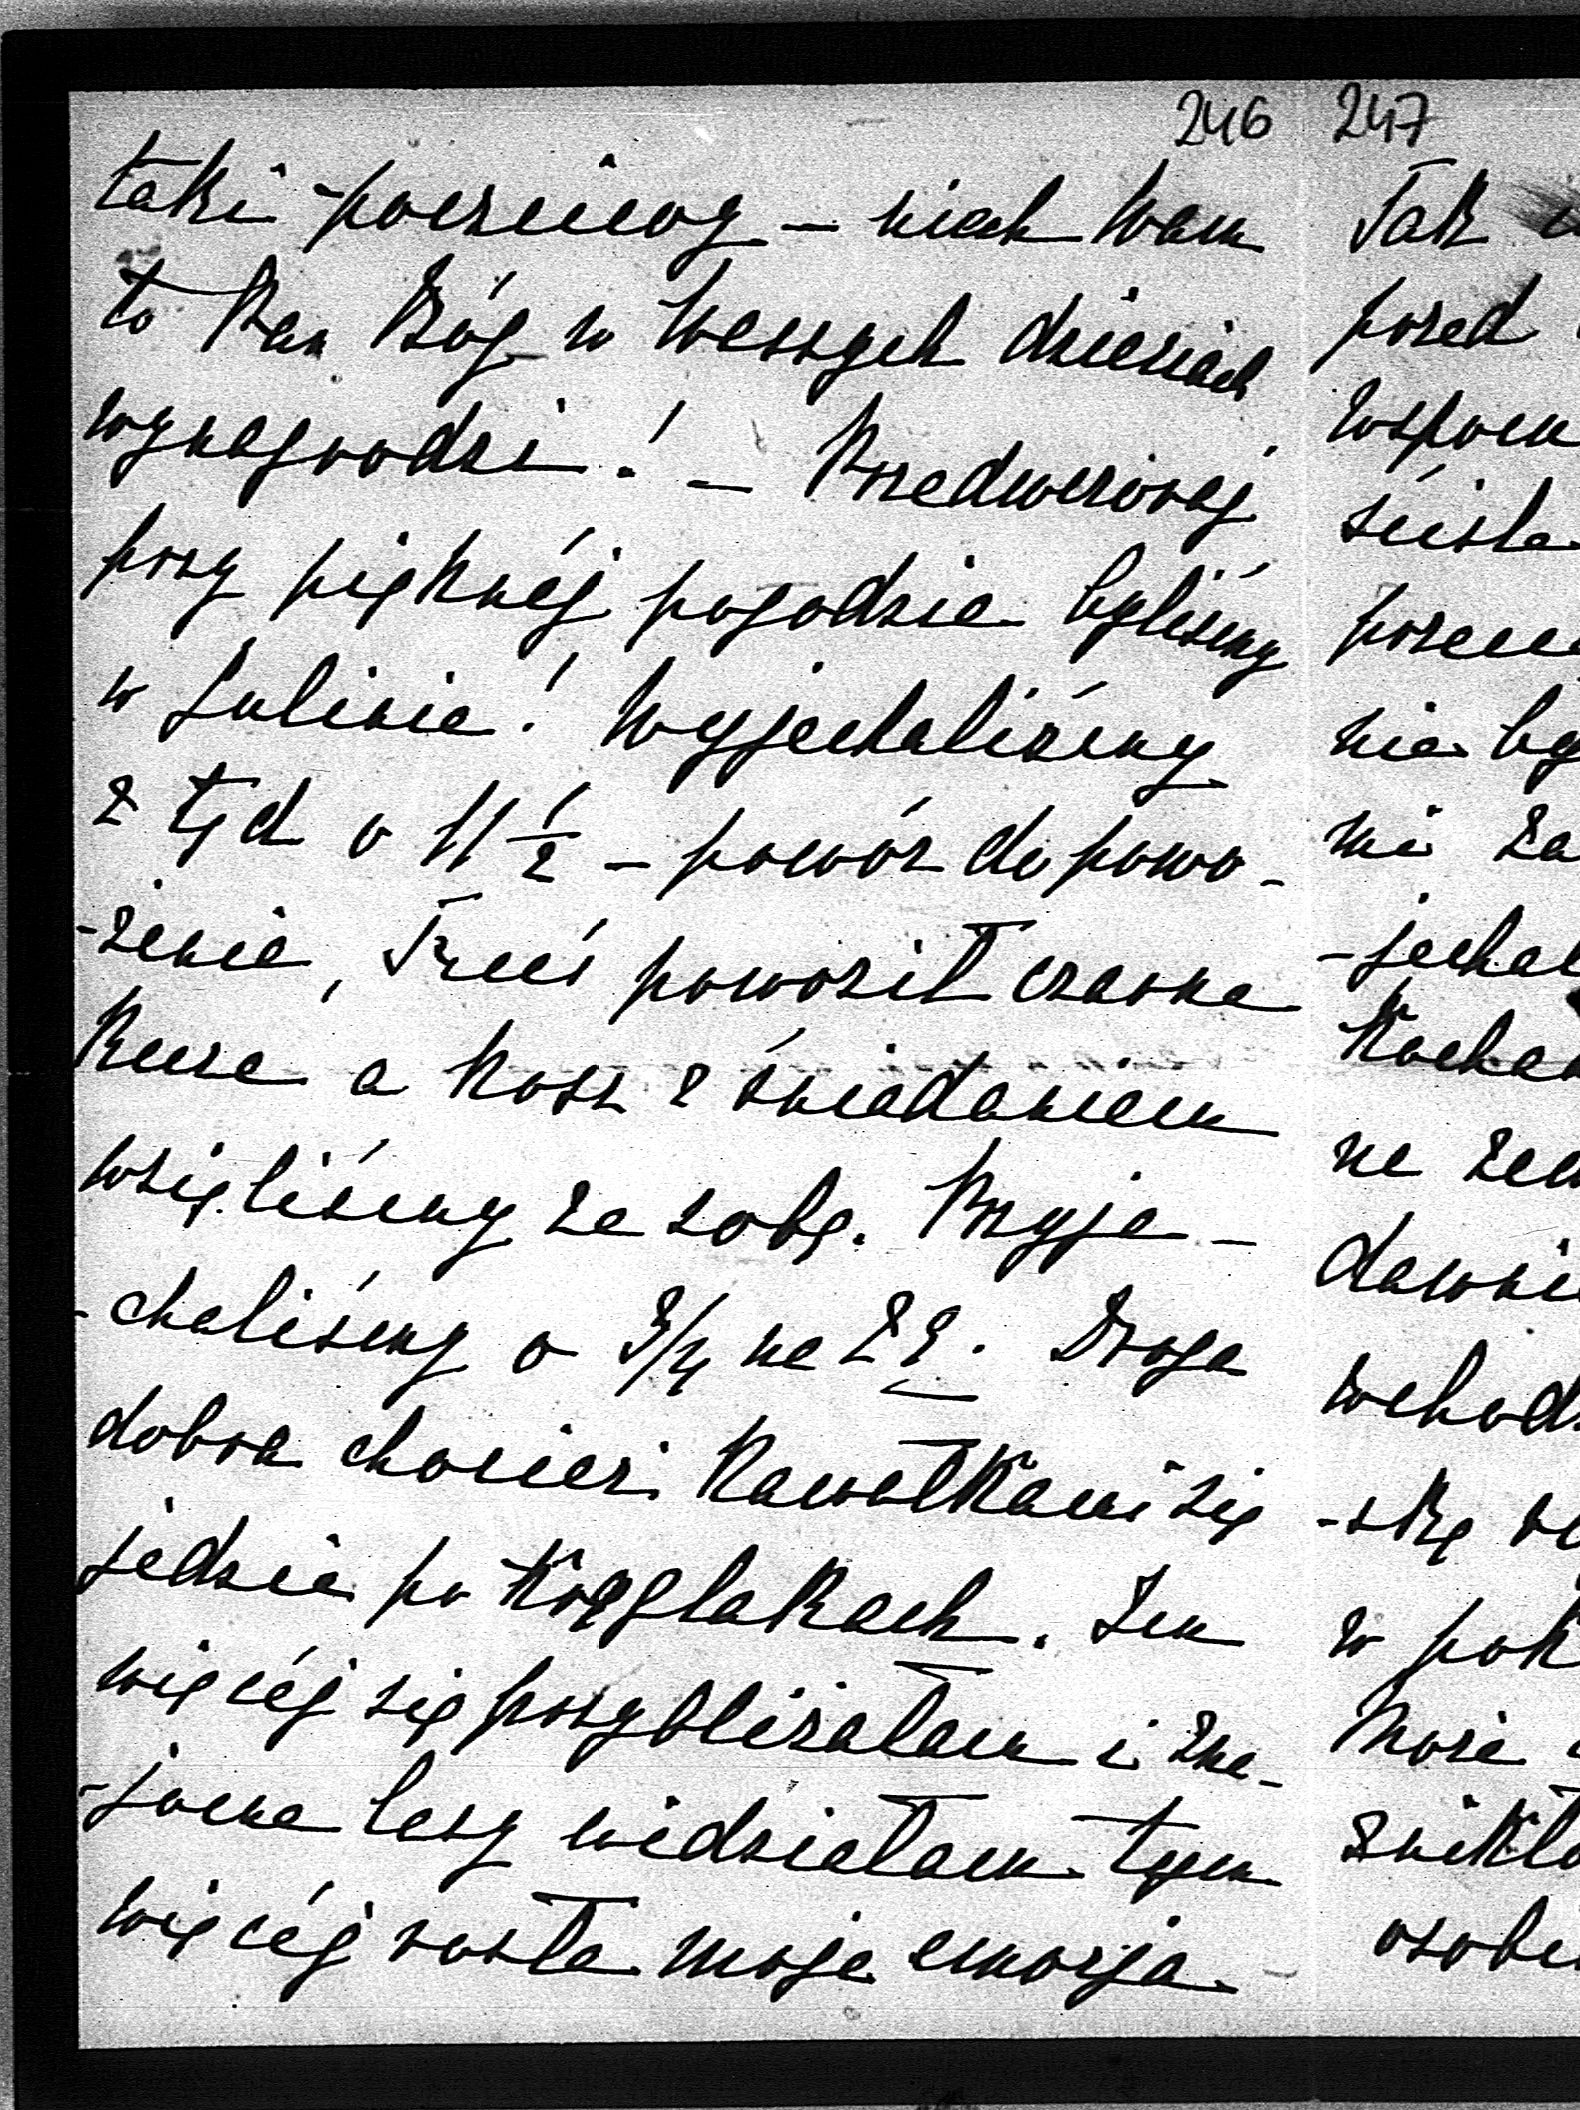 246
taki poczciwy – niech Wam
to Pan Bóg w Waszych dzieciach
wynagrodzi! – Przedwczoraj
przy pięknéj pogodzie byliśmy
w Lulinie! Wyjechaliśmy
z tąd o 11 1/2 – powóz do powo-
-żenia, powoził czarne
a kosz z śniadaniem
wzięliśmy ze sobą. Przyja-
-chaliśmy o 3/4 na 2ą. Droga
dobra chocierz kawałkami się
jedzie po krąglakach. Im
więcéj się przybliżałam i zna-
-jome lasy widziałam tym
więcéj rosła moja emozja
247
Tak
przed
wspom
ściśle
nie by
mi za
-jechal
Kochan
dawni
wchodz
-skę
w pok
Może
zwikła
osobi